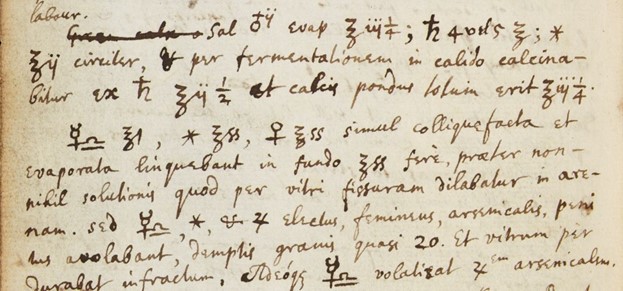 labour.
Sal ♁ij evap ℥iij¼; ♄ 4 vel 5 ℥; ✱
℥ij circiter, & per fermentationem in calido calcina-
bitur ex ♄ ℥ij ½ et calcis pondus totum erit ℥iij¼.
☿♎ ℥1, ✱ ℥ss, ♀ ℥ss simul colliquefacta et
evaporata linquebant in fundo ℥ss ferè, præter non-
nihil solutionis quod per vitri fissuram dilabatur in are-
nam. sed ☿♎, ✱, & ♃ electus, femineus, arsenicalis, peni
tus avolabant, demptis granis quasi 20. Et vitrum per
durabat infractum. Adeóqꝫ ☿♎ volatizat ♃em arsenicalem.